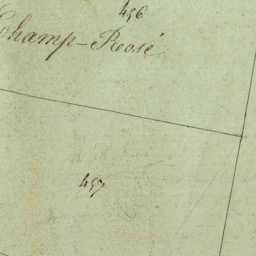 456
Champ-Rosé
457